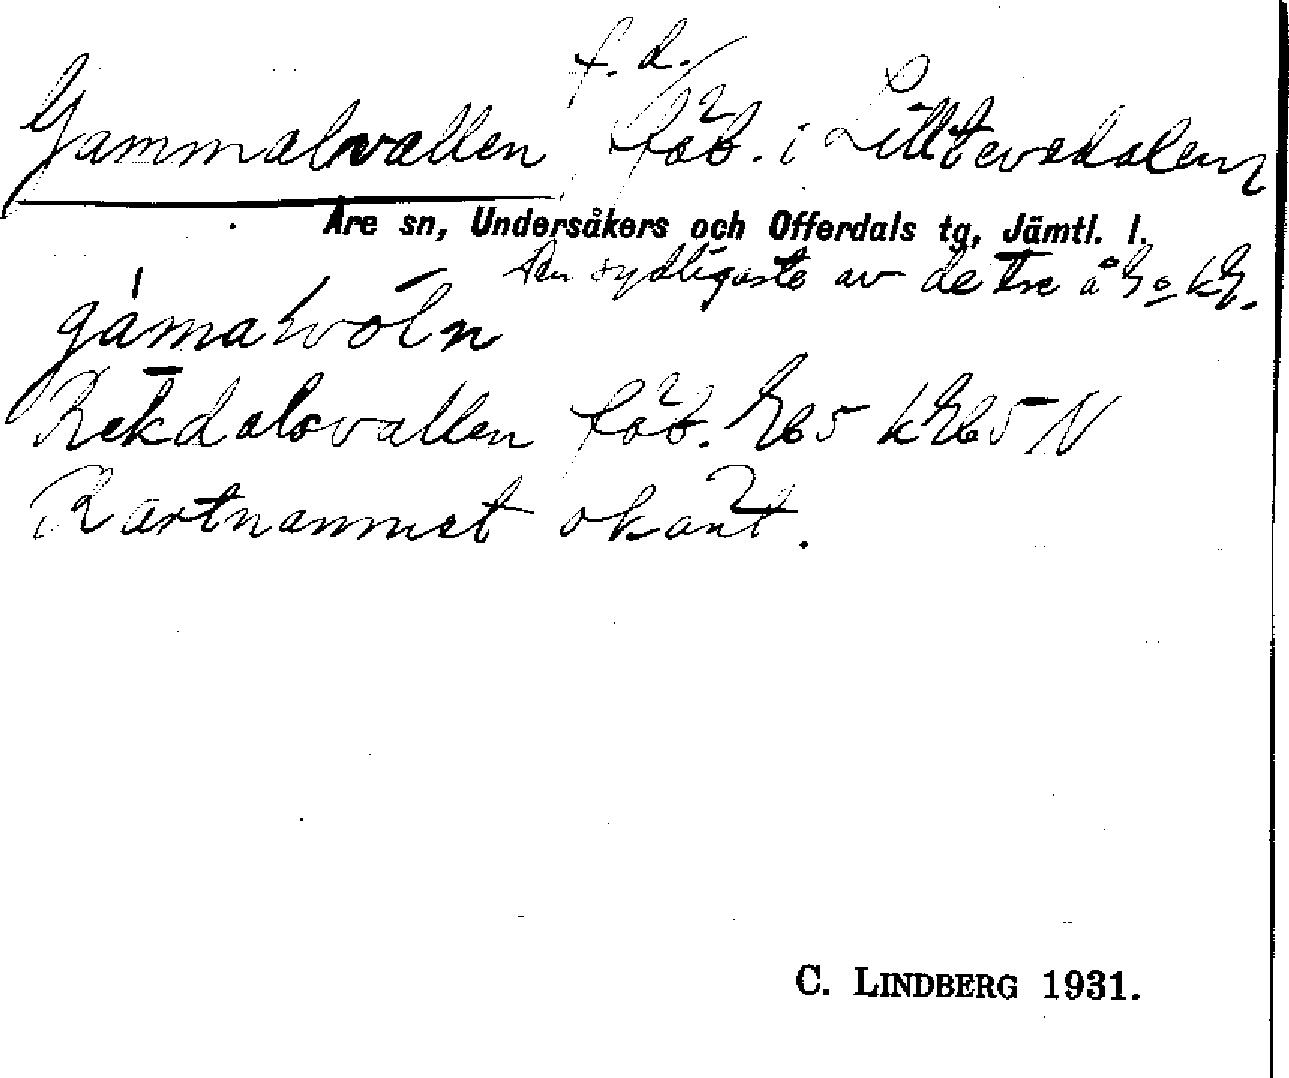 f. d.
Gammalvallen fäb. i Littevadalen
Åre sn, Undersåkers och Offerdals tg, Jämtl. l.
Den sydligaste av de tre å
gámalvōln
Rekdalsvallen fäb. N
Kartnamnet okänt.
C. LINDBERG 1931.